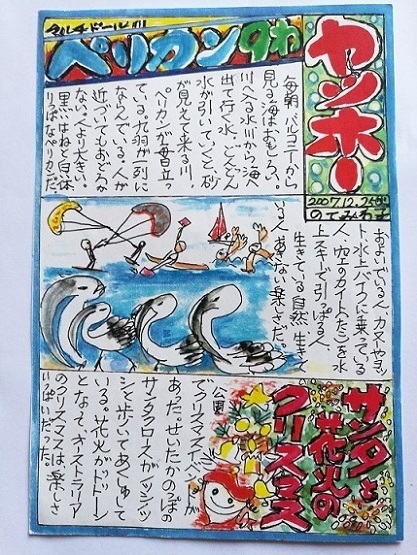 ヤッホー
2007.12.25
のてみわ子
マルチドール川
ペリカン9わ
毎朝、バルコニーから
見る海はおもしろい。
川へる水川から海へ
出て行く水。どんどん
水が引いていくと砂
が見えて来る川。
ペリカンが昔立っ
ている。九羽が列に
なんでいる。人が
近づいてもおどろか
ない。人より大きい。
黒いはねと白い体、
りっぱなペリカンだ。
およいでいる人、カヌーやヨッ
ト、水上バイクに乗っている
人、空上のカイト(たこ)を水
上スキーで引っぱる人。
生きている自然、生きて
いる人、あきない楽しさだ。
サンタと
花火の
クリスマス
公園
でクリスマスイベントが
あった。せいたかのっぽの
サンタクロースがノッシノッ
シと歩いてあくしゅして
いる。花火がドドーン
となって、オーストラリア
のクリスマスは、楽しさ
いっぱいだった。